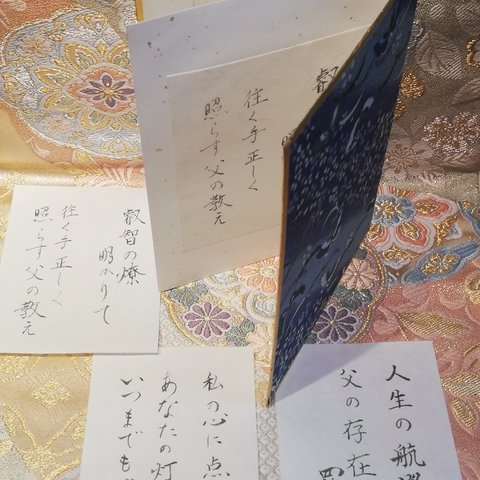 叡
往く手正しく
照らす父の教え
叡智の燎
明かりて
往く手正しく
照らす父の教え
私の心に点
あなたの灯
いつまでも
人生の航
父の存在